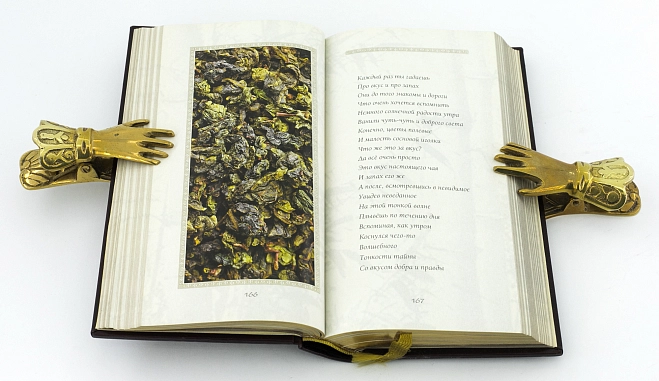 Каждый раз ты гадаешь
Про вкус и про запах
Они до того знакомы и дороги
Что очень хочется вспомнить
Немного солнечной радости утра
Ванили чуть-чуть и доброго света
Конечно, цветы полевые
И малость сосновой иголки
Что же это за вкус?
Да всё очень просто
Это вкус настоящего чая
И запах его же
А после, всмотревшись в невидимое
Увидев неведанное
На этой тонкой волне
Плывёшь по течению дня
Вспоминая, как утром
Коснулся чего-то
Волшебного
Тонкости тайны
Со вкусом добра и правды
166
167